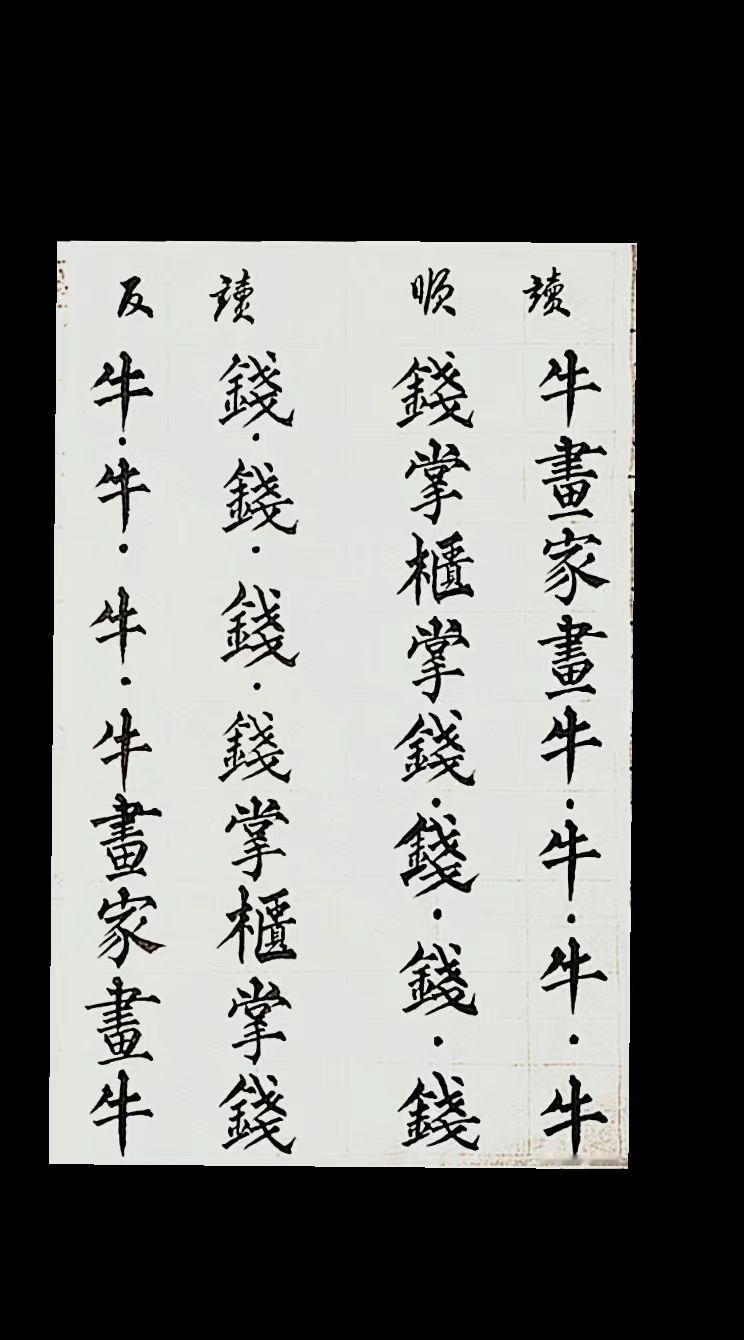 順讀
牛畫家畫牛·牛·牛·牛
錢掌櫃掌錢·錢·錢·錢
反讀
錢·錢·錢·錢掌櫃掌錢
牛·牛·牛·牛畫家畫牛